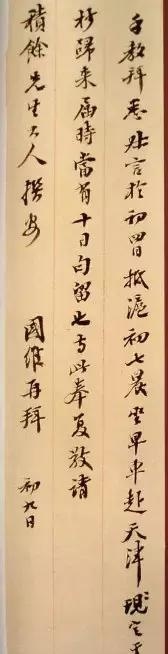 手教拜悉貽言於初四日抵滬初七晨坐早車赴天津現定
杪歸來屆時當有十日句留也專此奉复敬請
積餘先生大人撰安
國維再拜
初九日